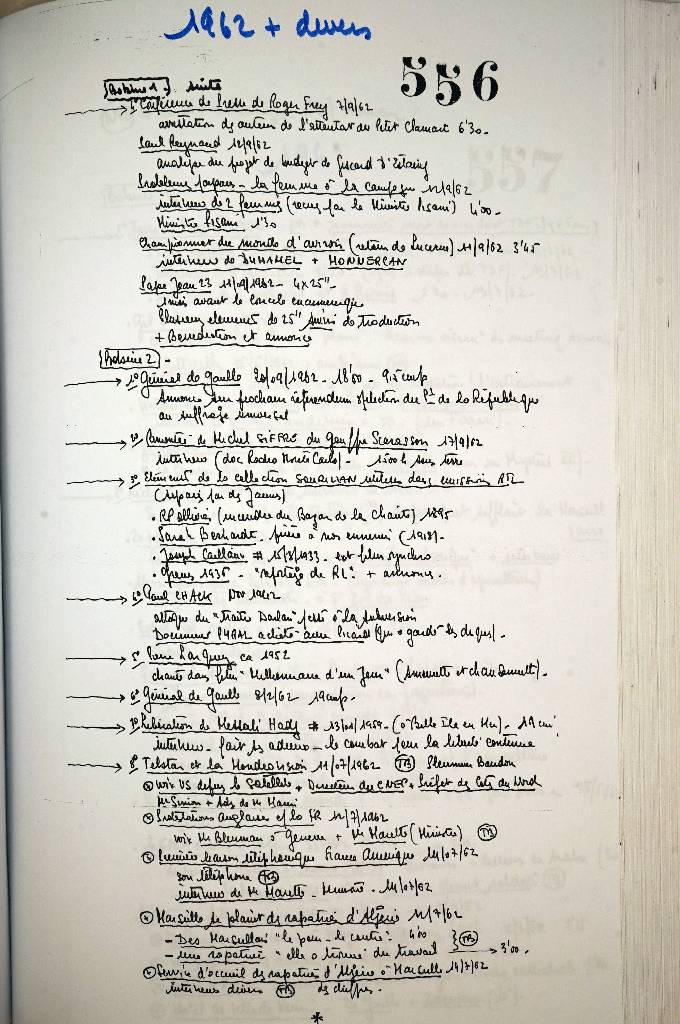 1962 + divers
556
Bobine 1. suite
4° Conférence de Presse de Roger Frey 7/9/62
arrestation ds auteurs de l'attentat du Petit Clamart 6'30.
Paul Reynaud 12/9/62
analyse du projet de budget de Giscard d'Estaing
Problèmes paysans - la femme à la campagne 12/9/62
interview de 2 femmes (reçues par le Ministre Pisani) 4'00.
Ministre Pisani 1'30
Championnat du monde d'aviron (retour de Lucerne) 11/9/62 3'45
interview de DUHAMEL + MONNEREAU
Pape Jean 23 11/09/1962 - 4x25"
1 mois avant le Concile oecuménique
Plusieurs éléments de 25" suivis de traduction
+ Bénédiction et annonce
Bobine 2 -
1° Général de Gaulle 20/09/1962 - 18'00 - 9,5 cmps
Annonce d'un prochain référendum s/élection du Pt de la République
au suffrage universel
2° Remontée de Michel SIFFRE du gouffre Scarasson 17/9/62
interview (doc Radio Monte Carlo) - 1500 h sous terre
3° Eléments de la collection utilisés dans émission RTL
(repris par ds Jeunes)
• RP Ollivier (incendie du Bazar de la Charité) 1895
• Sarah Bernhardt. prière à nos ennemis (1918).
• Joseph Caillaux # 15/8/1933 - ext film synchro
• Grèves 1936 - "reportage de RL" + annonces.
4° Paul CHACK Nov 1942
attaque du "traître Darlan" passé à la subversion
Document PYRAL acheté avec Picard (qui a gardé les disques).
5° Pierre Larquey ca 1952
chante dans film "Millionnaire d'un Jour" (Amourette et chansonnette).
6° Général de Gaulle 8/2/62 19 cmps.
7° Libération de Messali Hadj # 13/01/1959 - (à Belle Ile en Mer) - 19 cm
interview - fait ss adieux - le combat pour la liberté continue
8° Telstar et la Mondiovision 11/07/1962 (TB) Pleumeur Bodou
voix US depuis le Satellite + Directeur du CNET + Préfet des Côtes du Nord
Mr Simon + de Mr Marin
Protestations anglaises c/ la FR 12/7/1962
voix Mr à Genève + Mr Marette (Ministre) (TB)
Première liaison téléphonique France Amérique 11/07/62
son téléphone (TB)
interview de Mr Marette - Ministre - 11/07/62
Marseille se plaint ds rapatriés d'Algérie 11/7/62
- Des Marseillais "le pour - le contre" 4'00
- une rapatriée "elle a trouvé du travail" } (TB) → 3'00.
Service d'accueil ds rapatriés d'Algérie à Marseille 14/7/62
interviews divers (TB) ds chiffres.
*